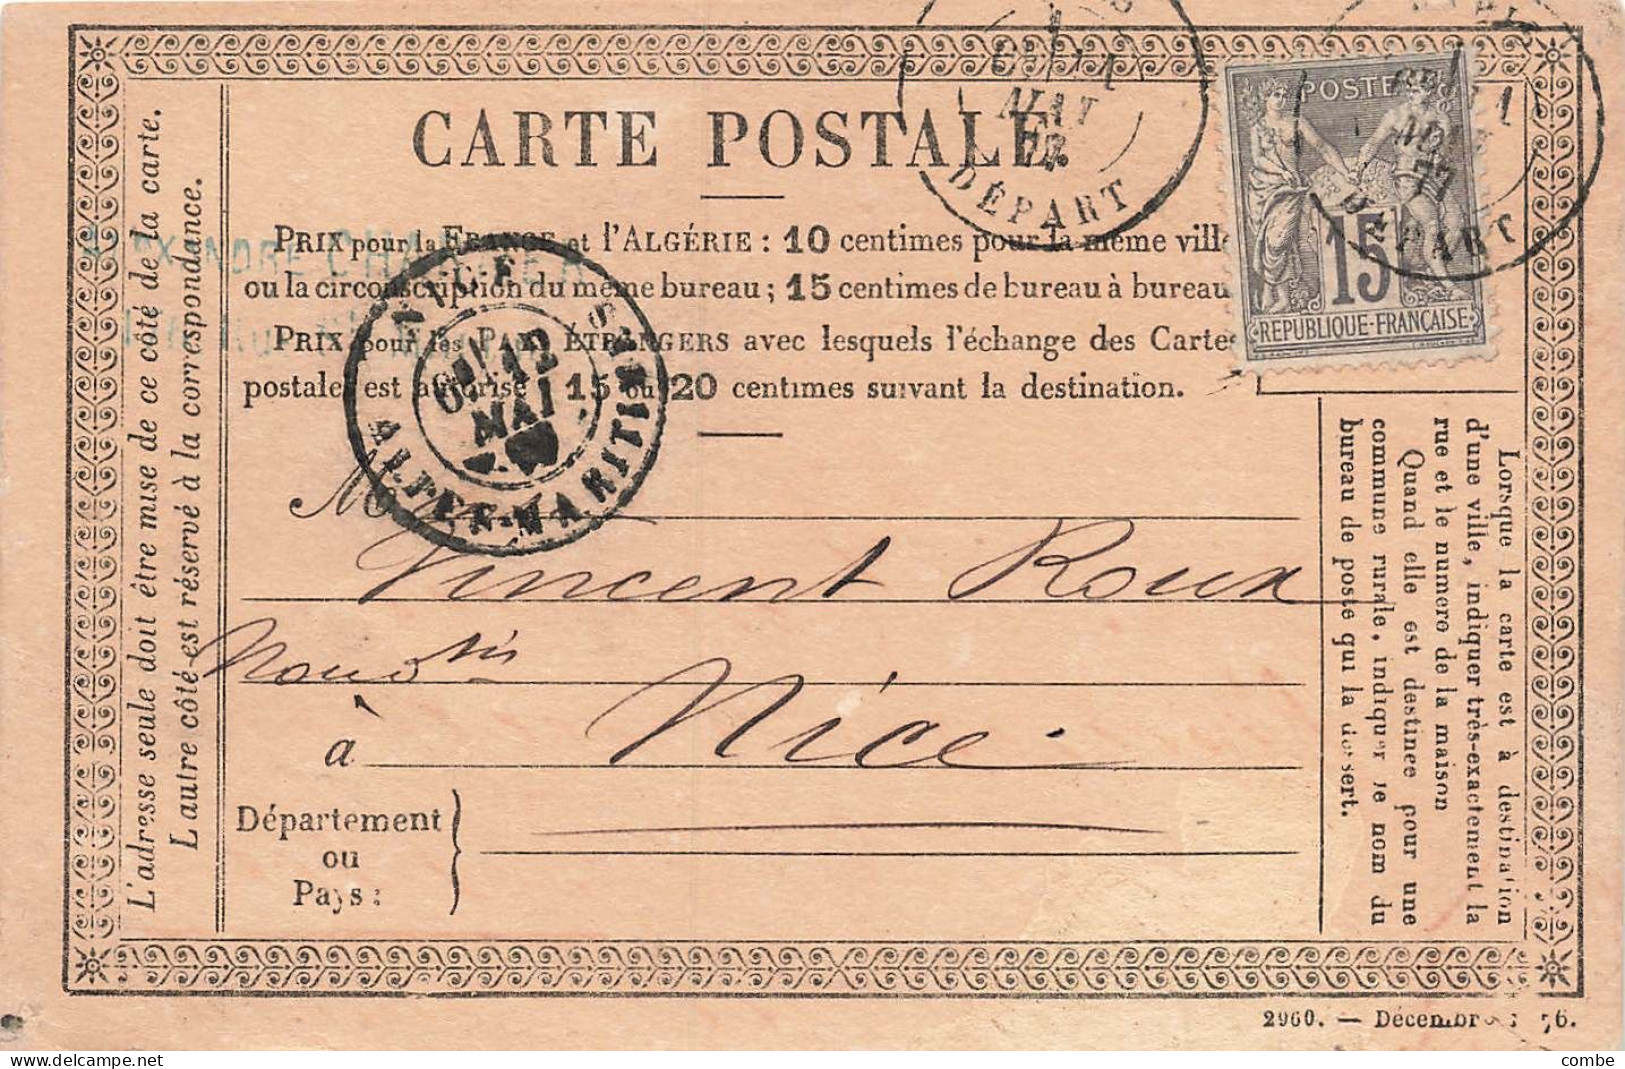 CARTE POSTALE
PRIX pour la FRANCE et l'ALGÉRIE : 10 centimes pour la même ville
ou la circonscription du même bureau ; 15 centimes de bureau à bureau
PRIX pour les PAYS ÉTRANGERS avec lesquels l'échange des Cartes
postales est autorisé : 15 ou 20 centimes suivant la destination.
MAI
77
DÉPART
POSTE
15
REPUBLIQUE-FRANÇAISE
MAI
77
DÉPART
NICE
12
MAI
ALPES-MARITIMES
CHARTIER
L'adresse seule doit être mise de ce côté de la carte.
L'autre côté est réservé à la correspondance.
M
Vincent Roux
Nice
à
Département
ou
Pays :
Lorsque la carte est à destination
d'une ville, indiquer très-exactement la
rue et le numero de la maison
Quand elle est destinee pour une
commune rurale, indiquer le nom du
bureau de poste qui la dessert.
2960. — Décembre 1876.
combe